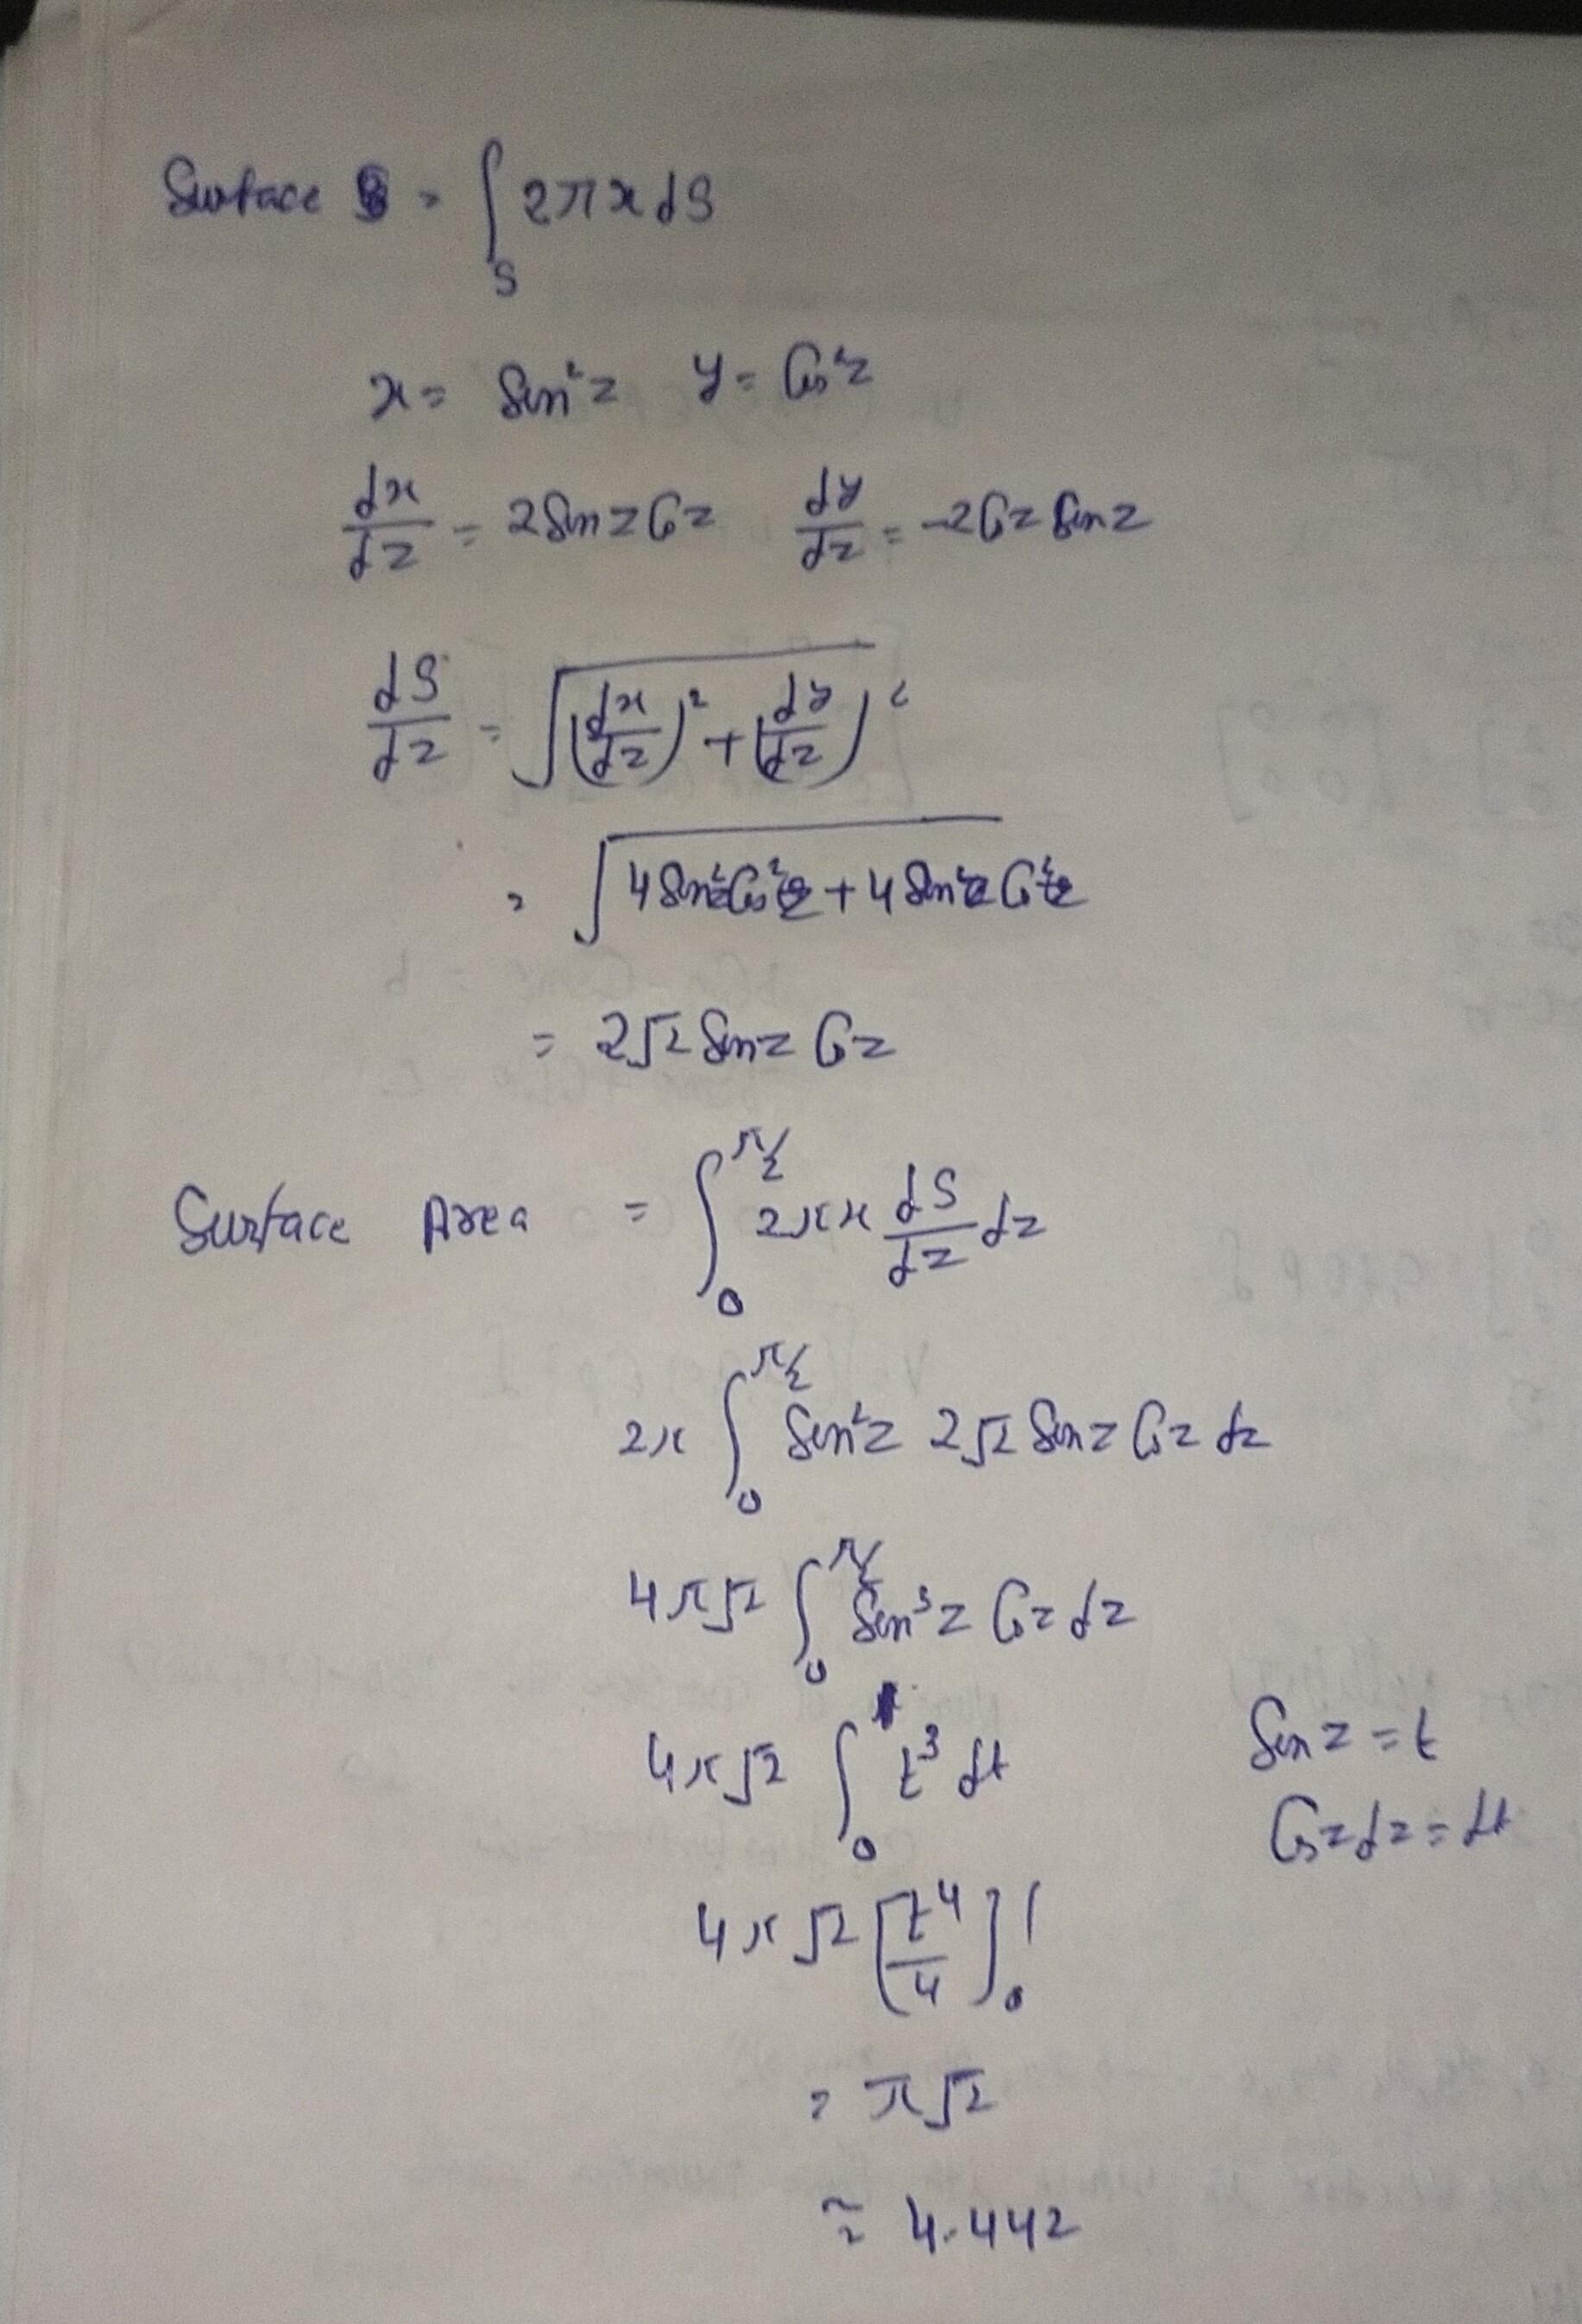 Surface S = ∫_S 2πx dS
x = Sin²z y = Cos²z
dx/dz = 2Sin z Cos z dy/dz = -2Cos z Sin z
dS/dz = √((dx/dz)² + (dy/dz)²)
= √(4Sin²z Cos²z + 4Sin²z Cos²z)
= 2√2 Sin z Cos z
Surface Area = ∫_0^{π/2} 2πx dS/dz dz
2π ∫_0^{π/2} Sin²z 2√2 Sin z Cos z dz
4π√2 ∫_0^{π/2} Sin³z Cos z dz
4π√2 ∫_0^1 t³ dt Sin z = t
Cos z dz = dt
4π√2 [t⁴/4]_0^1
= π√2
≈ 4.442